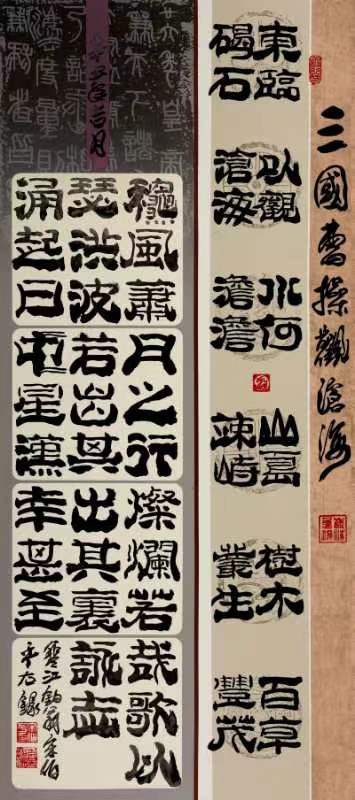 三國曹操觀滄海
東臨
碣石
以觀
滄海
水何
澹澹
山島
竦峙
樹木
叢生
百草
豐茂
穐風蕭
瑟洪波
涌起日
月之行
若出其
中星漢
燦爛若
出其裏
幸甚至
哉歌以
詠志